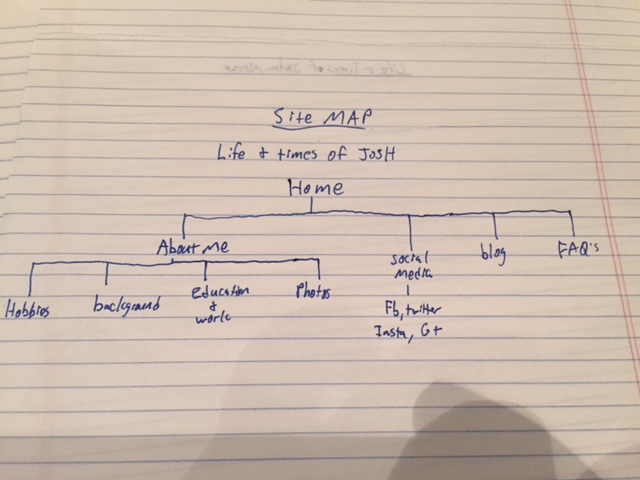 Site MAP
Life & times of JOSH
Home
About me
social
media
blog
FAQ's
Hobbies
background
Education
&
work
Photos
Fb, twitter
Insta, G+